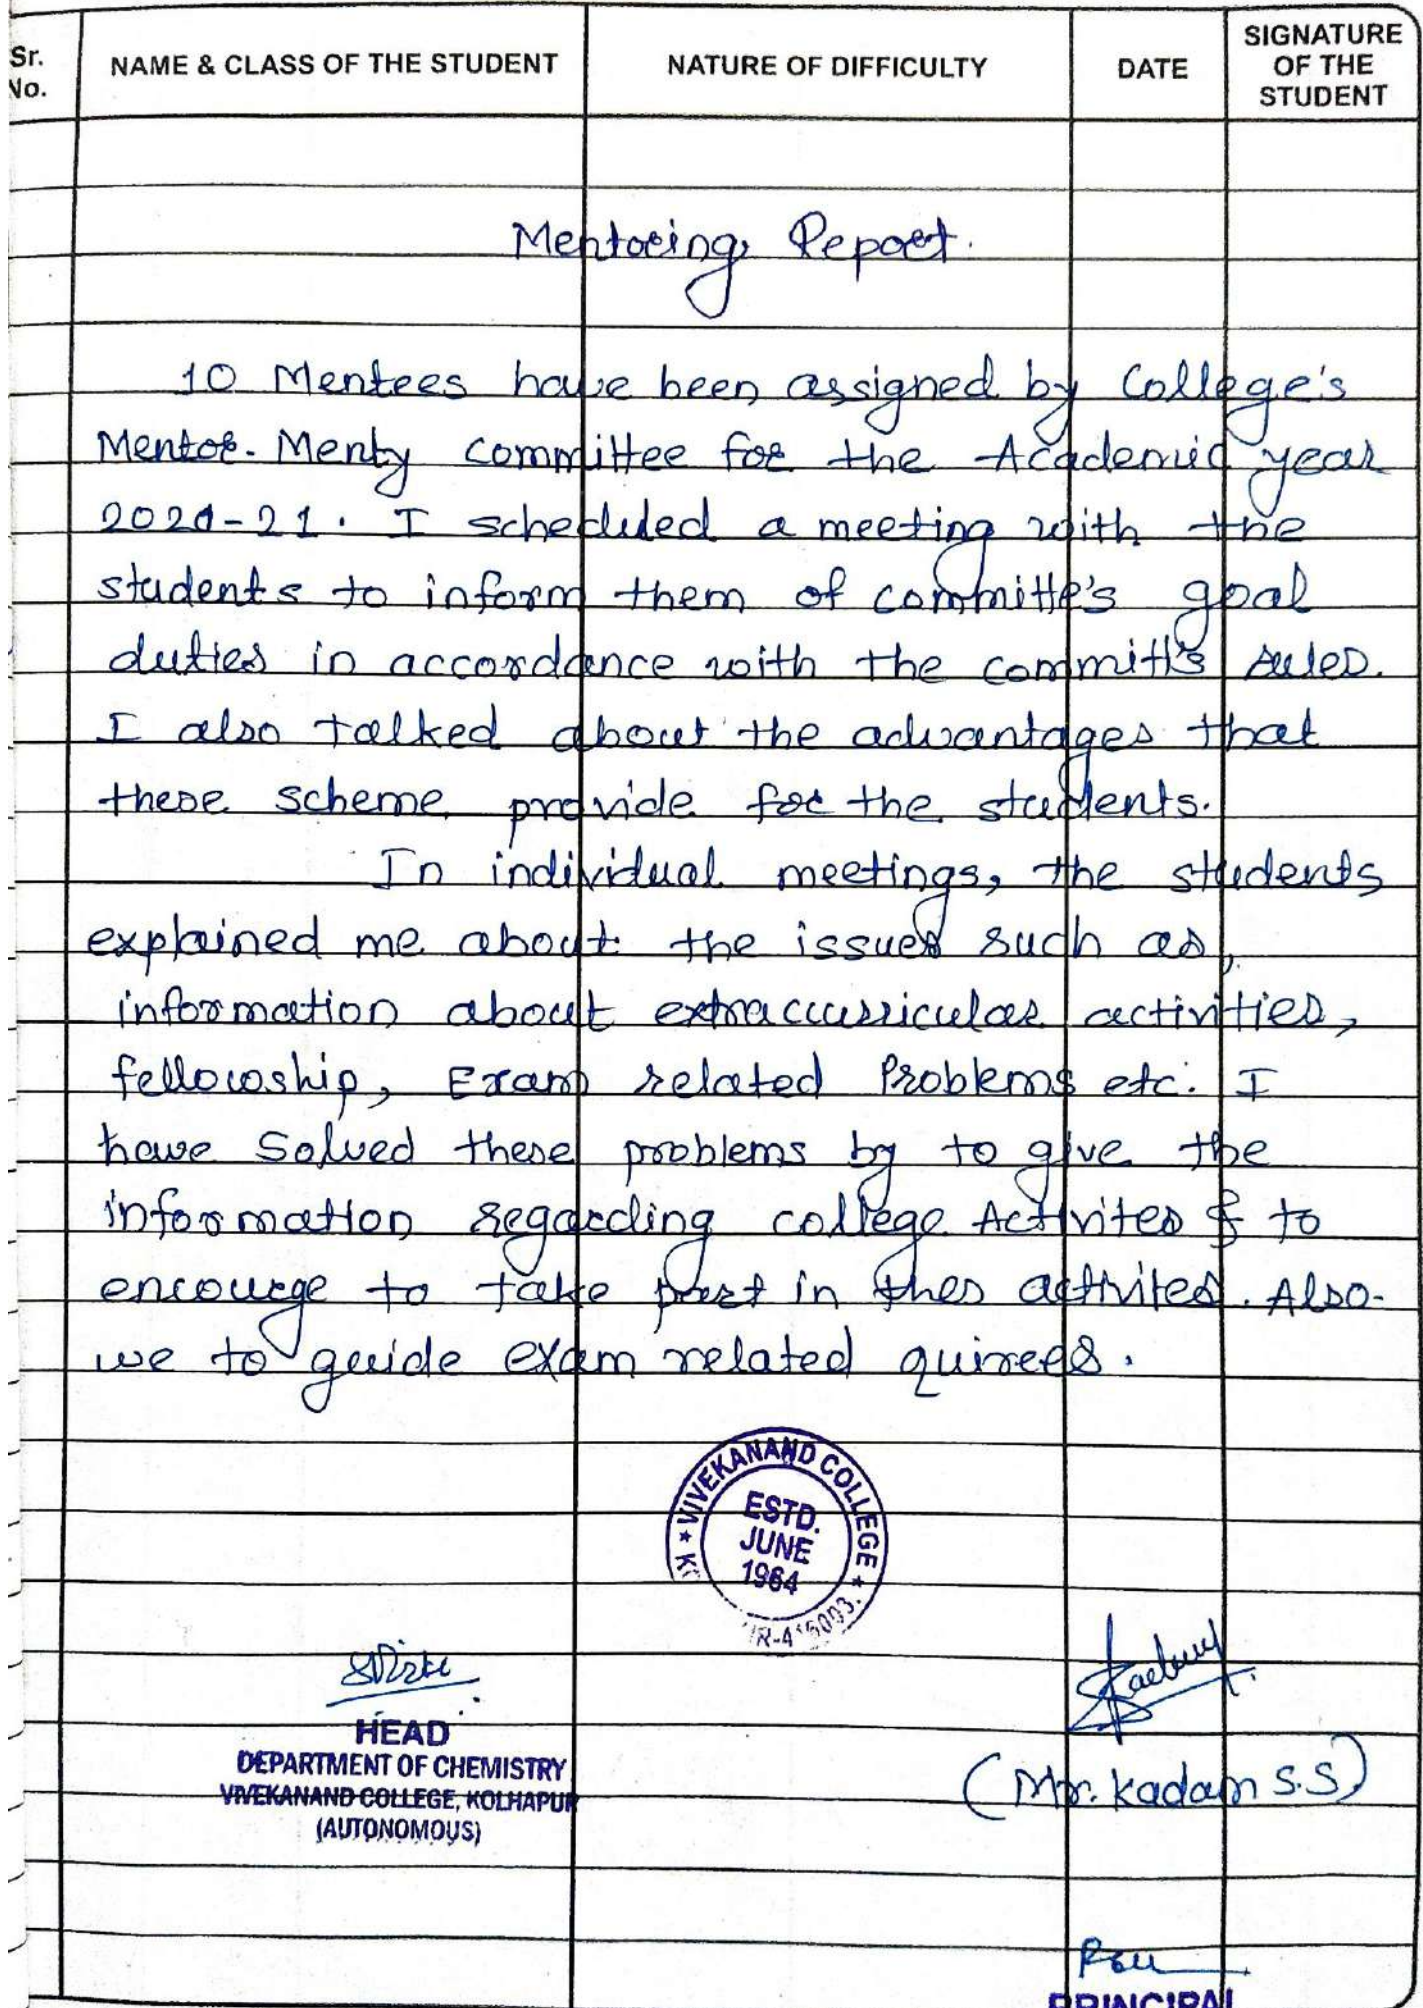 Sr. No.
NAME & CLASS OF THE STUDENT
NATURE OF DIFFICULTY
DATE
SIGNATURE OF THE STUDENT
Mentoring Report.
10 Mentees have been assigned by College's
Mentor-Menty committee for the Academic year
2020-21. I scheduled a meeting with the
students to inform them of committe's goal
duties in accordance with the committ's rules.
I also talked about the advantages that
these scheme provide for the students.
In individual meetings, the students
explained me about the issues such as,
information about extracurricular activities,
fellowship, Exam related Problems etc. I
have Solved these problems by to give the
information regarding college Activites & to
encourge to take part in thes activites. Also
we to guide exam related quirees.
VIVEKANAND COLLEGE
ESTD.
JUNE
1964
HEAD
DEPARTMENT OF CHEMISTRY
VIVEKANAND COLLEGE, KOLHAPUR
(AUTONOMOUS)
(Mr. Kadam S.S)
PRINCIPAL